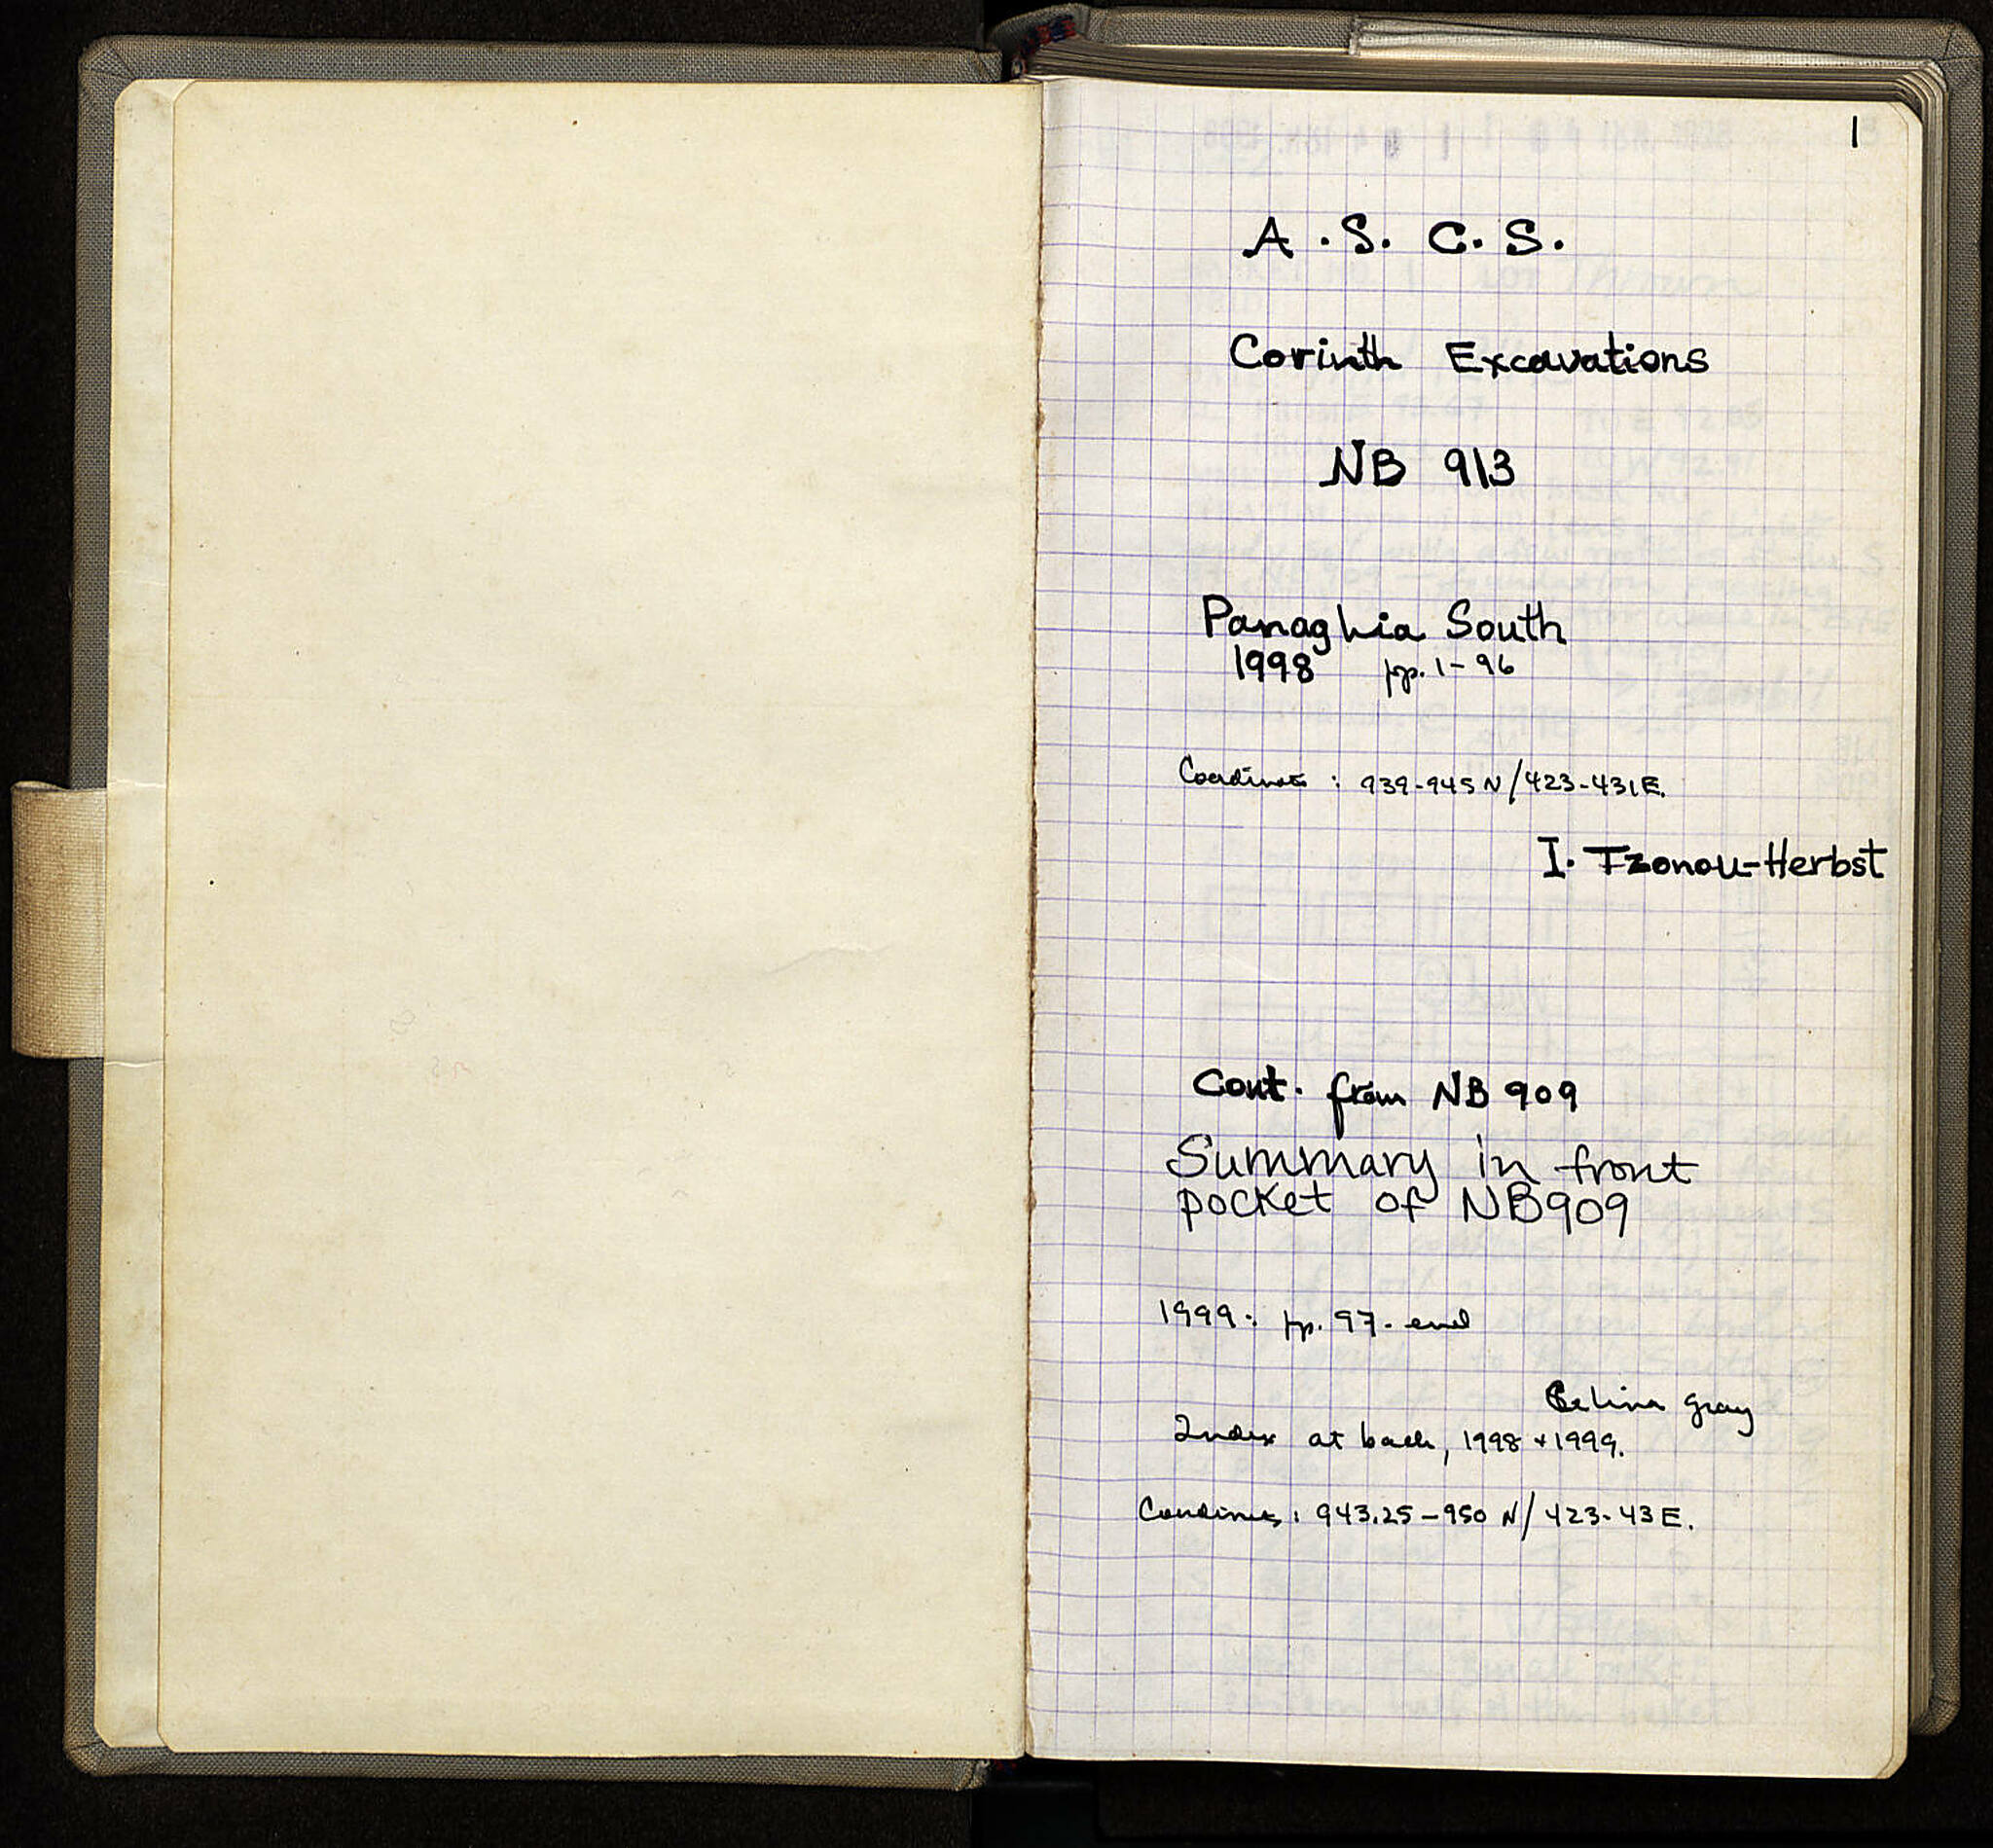 1
A . S. C. S.
Corinth Excavations
NB 913
Panaghia South
1998 pp. 1-96
: 939-945 N/423-431E.
I. Tzonou-Herbst
Cont. from NB 909
Summary in front
pocket of NB909
1999: pp. 97- end
Celina Gray
Index at back, 1998 + 1999.
: 943.25-950 N/ 423-43 E.